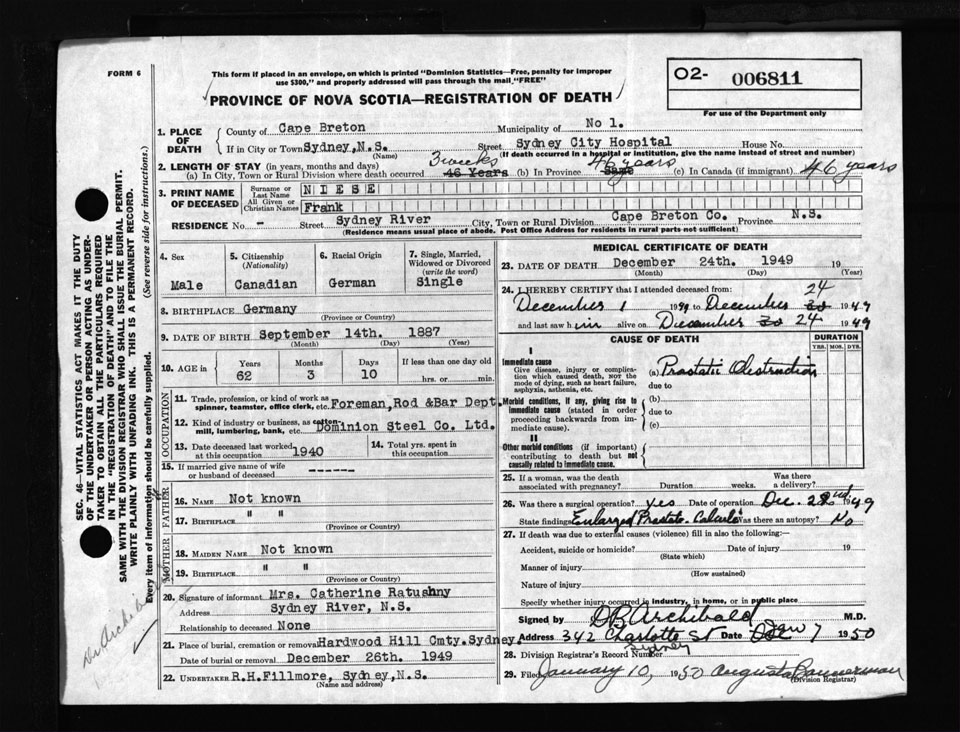 FORM 6
This form if placed in an envelope, on which is printed "Dominion Statistics—Free, penalty for improper
use $300," and properly addressed will pass through the mail, "FREE"
PROVINCE OF NOVA SCOTIA—REGISTRATION OF DEATH
O2- 006811
For use of the Department only
1. PLACE OF DEATH
County of Cape Breton Municipality of No 1.
If in City or Town Sydney, N.S. Street Sydney City Hospital House No.
(Name) (If death occurred in a hospital or institution, give the name instead of street and number)
2. LENGTH OF STAY (in years, months and days) 3 weeks 46 years
(a) In City, Town or Rural Division where death occurred 46 Years (b) In Province Same (c) In Canada (if immigrant) 46 years
3. PRINT NAME OF DECEASED
Surname or Last Name NIESE
All Given or Christian Names Frank
RESIDENCE No. - Street Sydney River City, Town or Rural Division Cape Breton Co. Province N.S.
(Residence means usual place of abode. Post Office Address for residents in rural parts not sufficient)
4. Sex Male
5. Citizenship (Nationality) Canadian
6. Racial Origin German
7. Single, Married, Widowed or Divorced (write the word) Single
8. BIRTHPLACE Germany
(Province or Country)
9. DATE OF BIRTH September 14th. 1887
(Month) (Day) (Year)
10. AGE in Years 62 Months 3 Days 10 If less than one day old
hrs. or min.
OCCUPATION
11. Trade, profession, or kind of work as
spinner, teamster, office clerk, etc. Foreman, Rod &Bar Dept.
12. Kind of industry or business, as cotton
mill, lumbering, bank, etc. Dominion Steel Co. Ltd.
13. Date deceased last worked at this occupation 1940
14. Total yrs. spent in this occupation
15. If married give name of wife
or husband of deceased ------
FATHER
16. NAME Not known
17. BIRTHPLACE " "
(Province or Country)
MOTHER
18. MAIDEN NAME Not known
19. BIRTHPLACE " "
(Province or Country)
20. Signature of informant Mrs. Catherine Ratushny
Address Sydney River, N.S.
Relationship to deceased None
21. Place of burial, cremation or removal Hardwood Hill Cmty. Sydney.
Date of burial or removal December 26th. 1949
22. UNDERTAKER R.H.Fillmore, Sydney, N.S.
(Name and address)
MEDICAL CERTIFICATE OF DEATH
23. DATE OF DEATH December 24th. 1949 19
(Month) (Day) (Year)
24. I HEREBY CERTIFY that I attended deceased from: 24
December 1 1949 to December 1949
and last saw him alive on December 24 1949
CAUSE OF DEATH
DURATION
YRS. MOS. DYS.
I
Immediate cause
Give disease, injury or complication which caused death, NOT the mode of dying, such as heart failure, asphyxia, asthenia, etc.
(a) Prostatic Obstruction
due to
Morbid conditions, if any, giving rise to immediate cause (stated in order proceeding backwards from immediate cause).
(b)
due to
(c)
II
Other morbid conditions (if important) contributing to death but not causally related to immediate cause.
25. If a woman, was the death associated with pregnancy? Duration weeks. Was there a delivery?
26. Was there a surgical operation? yes Date of operation Dec. 22nd 1949
State findings Enlarged Prostate - Calculi Was there an autopsy? No
27. If death was due to external causes (violence) fill in also the following:—
Accident, suicide or homicide? Date of injury 19
(State which)
Manner of injury
(How sustained)
Nature of injury
Specify whether injury occurred in industry, in home, or in public place
Signed by DB Archibald M.D.
Address 342 Charlotte St Date Jan 7 1950
Sydney
28. Division Registrar's Record Number
29. Filed January 10, 1950 Augusta Bannerman
(Division Registrar)
SEC. 46—VITAL STATISTICS ACT MAKES IT THE DUTY
OF THE UNDERTAKER OR PERSON ACTING AS UNDER-
TAKER TO OBTAIN ALL THE PARTICULARS REQUIRED
IN THE "REGISTRATION OF DEATH" AND TO FILE THE
SAME WITH THE DIVISION REGISTRAR WHO SHALL ISSUE THE BURIAL PERMIT.
WRITE PLAINLY WITH UNFADING INK. THIS IS A PERMANENT RECORD.
Every item of information should be carefully supplied. (See reverse side for instructions.)
Dr Archibald